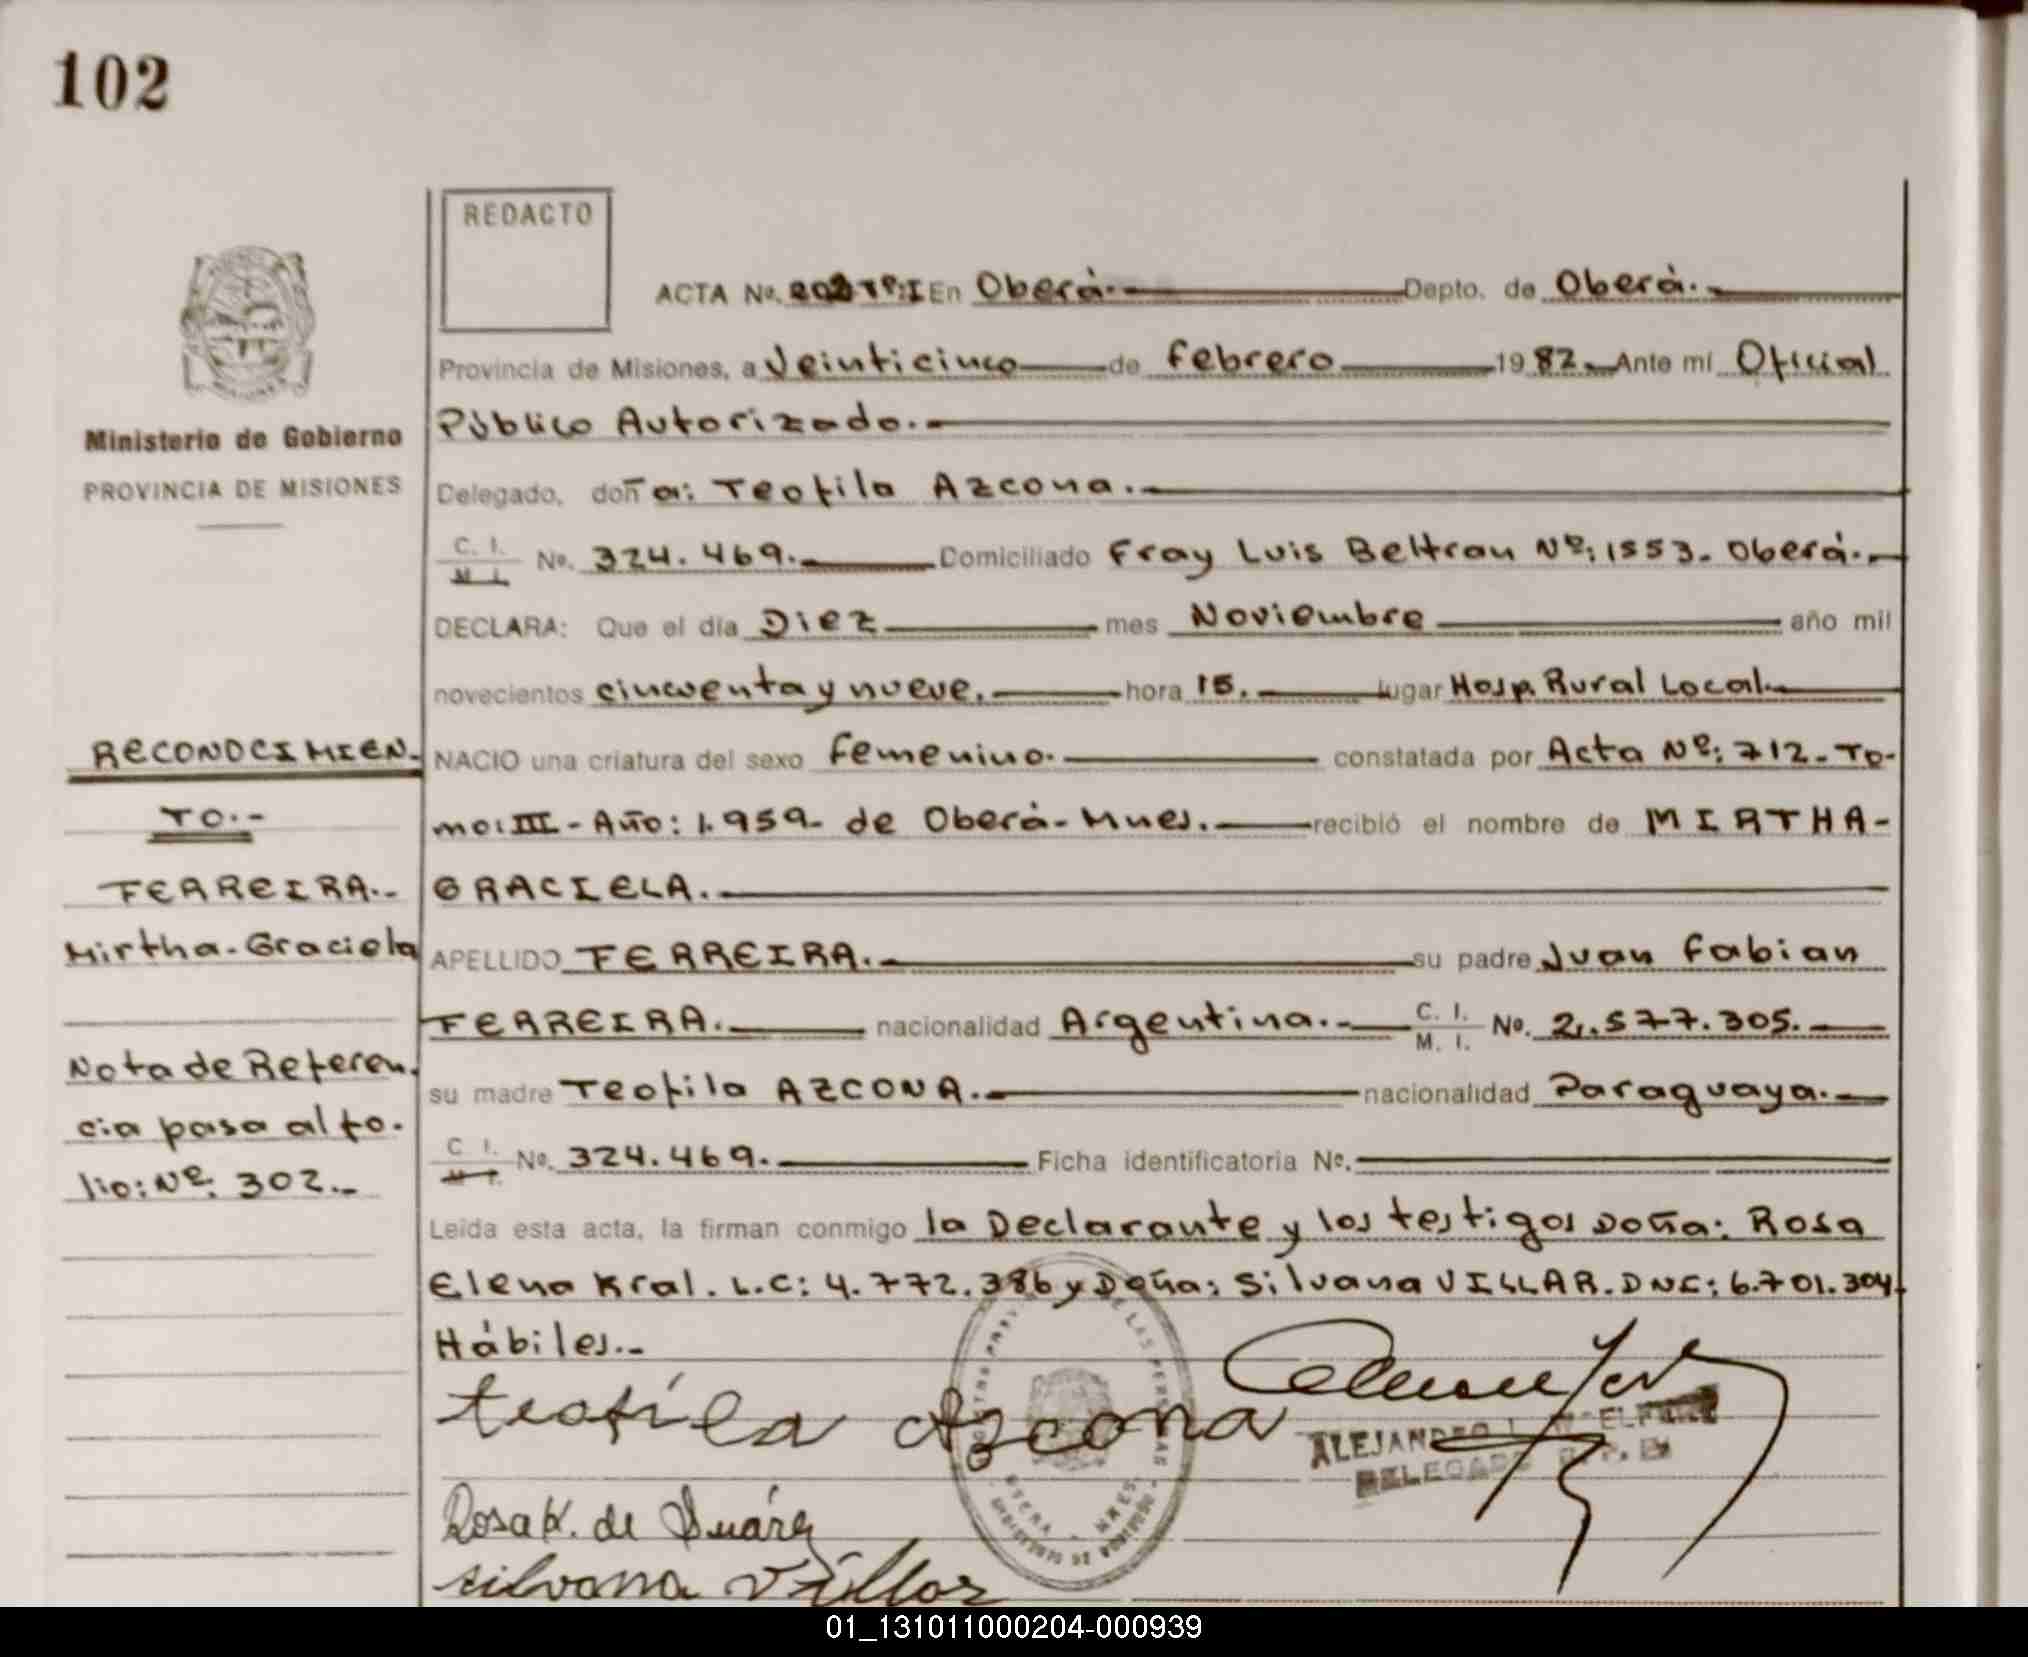 102
REDACTO
ACTA No. 202 Tº:I En Oberá.- Depto. de Oberá.-
Provincia de Misiones, a Veinticinco de Febrero 1982.- Ante mí Oficial
Público Autorizado.-
Delegado, doña: Teofila Azcona.-
C. I. M. I. No. 324.469.- Domiciliado Fray Luis Beltran Nº: 1553. Oberá.-
DECLARA: Que el día Diez mes Noviembre año mil
novecientos cincuenta y nueve. hora 15. lugar Hosp. Rural Local.
NACIO una criatura del sexo Femenino. constatada por Acta Nº: 712- To-
mo: III - Año: 1.959- de Oberá- Mnes. recibió el nombre de MIRTHA-
GRACIELA.
APELLIDO FERREIRA.- su padre Juan Fabian
FERREIRA. nacionalidad Argentina.- C. I. M. I. No. 2.577.305.
su madre Teofila AZCONA.- nacionalidad Paraguaya.-
C. I. M. I. No. 324.469. Ficha identificatoria No.
Leida esta acta, la firman conmigo la Declarante y los testigos Doña: Rosa
Elena Kral. L.C: 4.772.386 y Doña: Silvana VILLAR. DNI: 6.701.304
Hábiles.-
teofila Azcona
Rosa K. de Suárez
silvana Villar
ALEJANDRO
DELEGADO
Ministerio de Gobierno
PROVINCIA DE MISIONES
RECONOCIMIEN-
TO.-
FERREIRA.-
Mirtha-Graciela
Nota de Referen-
cia pasa al fo-
lio: Nº: 302.-
01_131011000204-000939